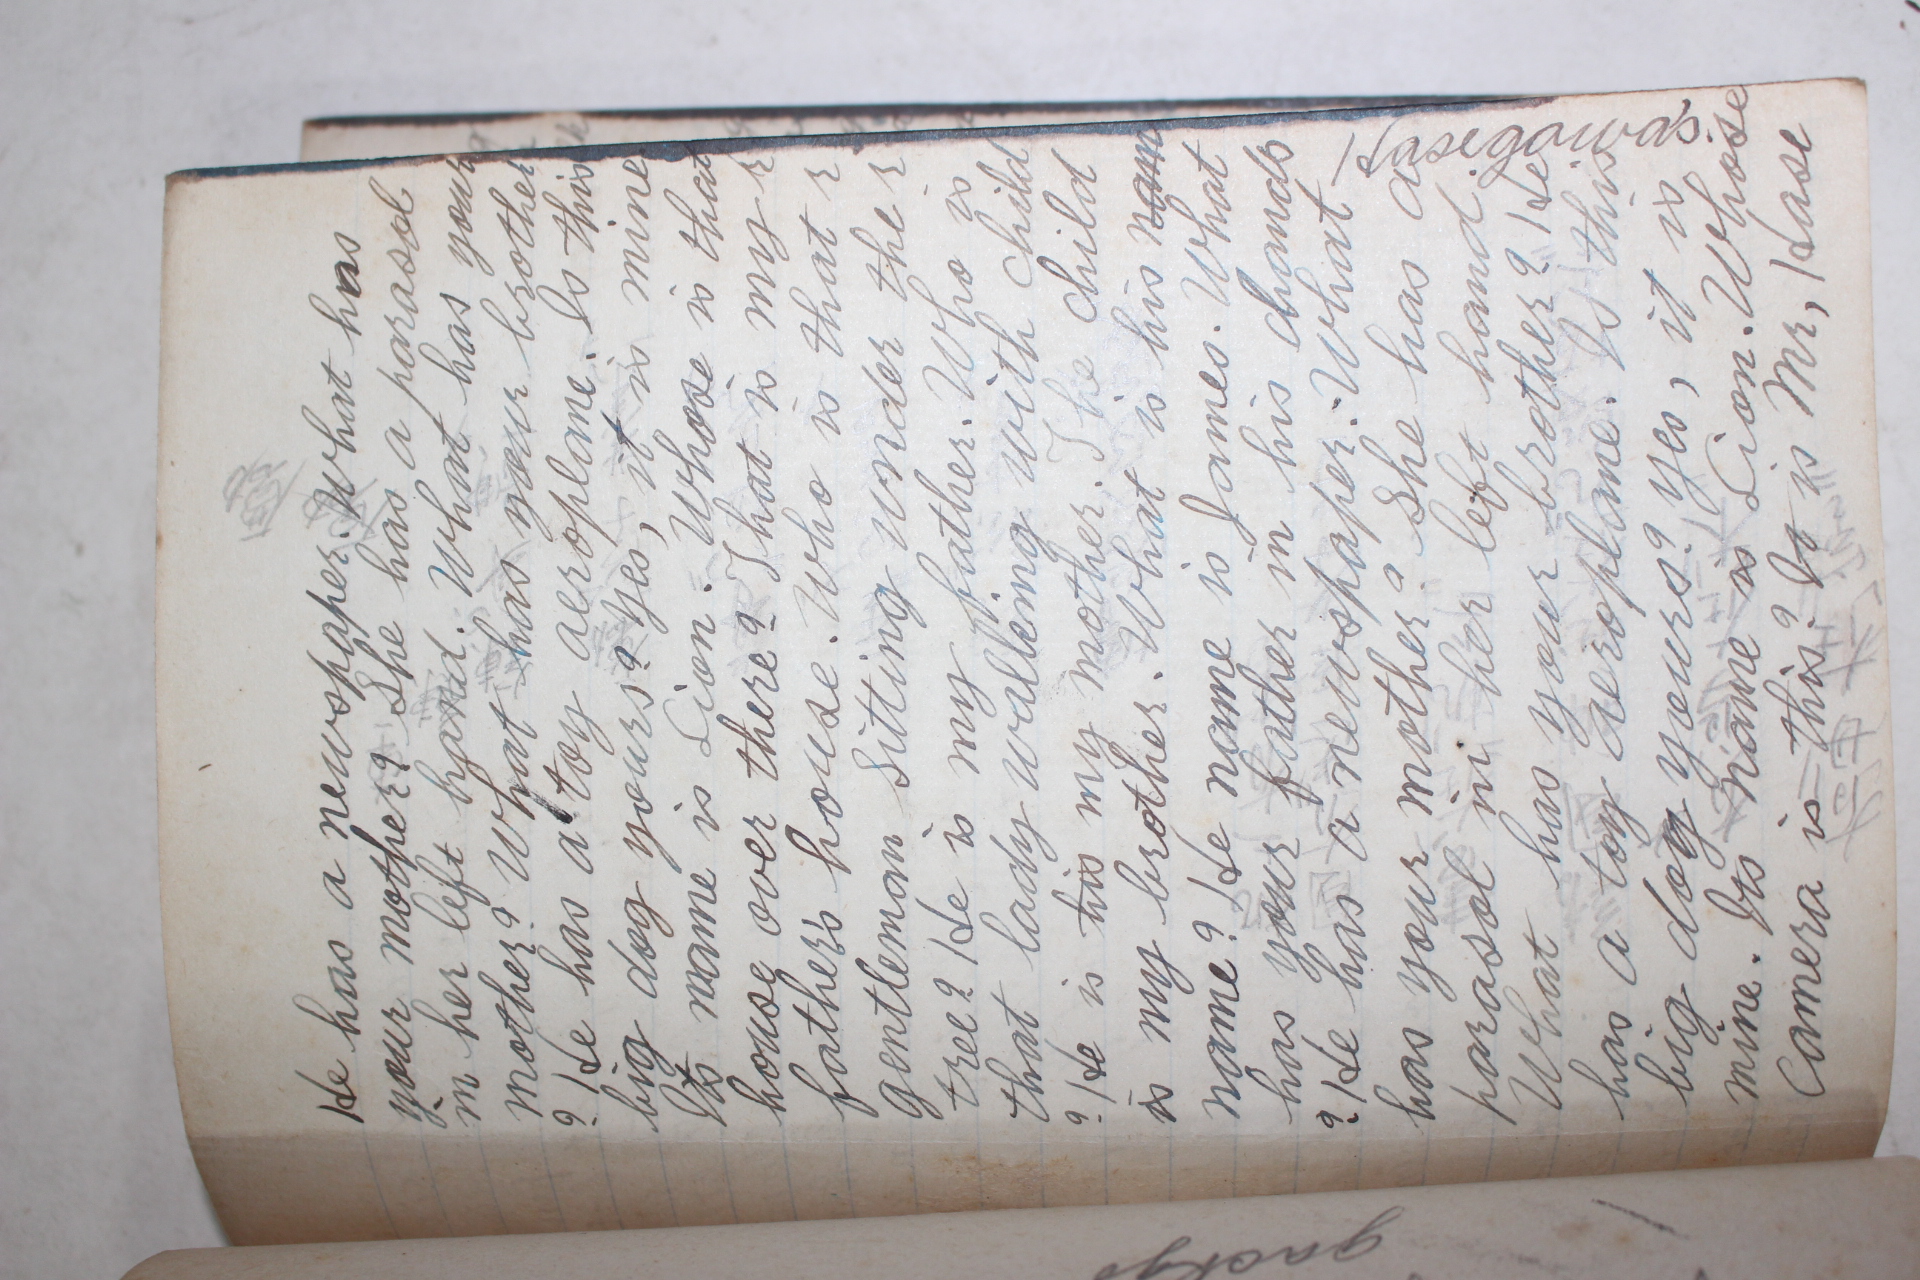 He has a newspaper. What has
your mother? She has a parasol
in her left hand. What has your
mother? What has your brother
? He has a toy aeroplane. Is this
big dog yours? Yes, it is mine
Its name is Lion. Whose is that
house over there? That is my
father's house. Who is that
gentleman sitting under the
tree? He is my father. Who is
that lady walking with child
? He is his my mother. The child
is my brother. What is his nam
name? He name is James. What
has your father in his chands
? He has a newspaper. What
has your mother? She has a
parasol in her left hand
What has your brother? He
has a toy aeroplane. Is this
big dog yours? Yes, it is
mine. Its name is Lion. Whose
Camera is this? It is Mr, Hase